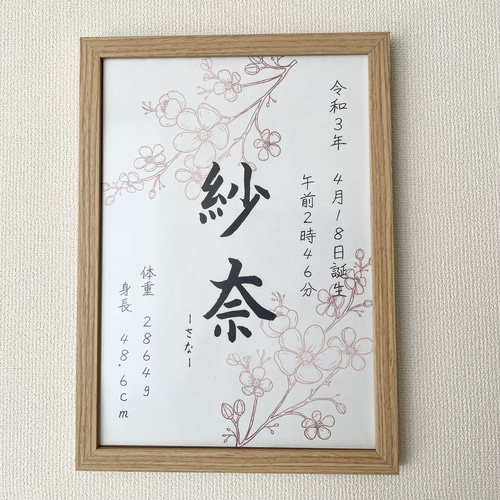 令和3年 4月18日誕生
午前2時46分
紗奈
ーさなー
体重 2864g
身長 48.6cm